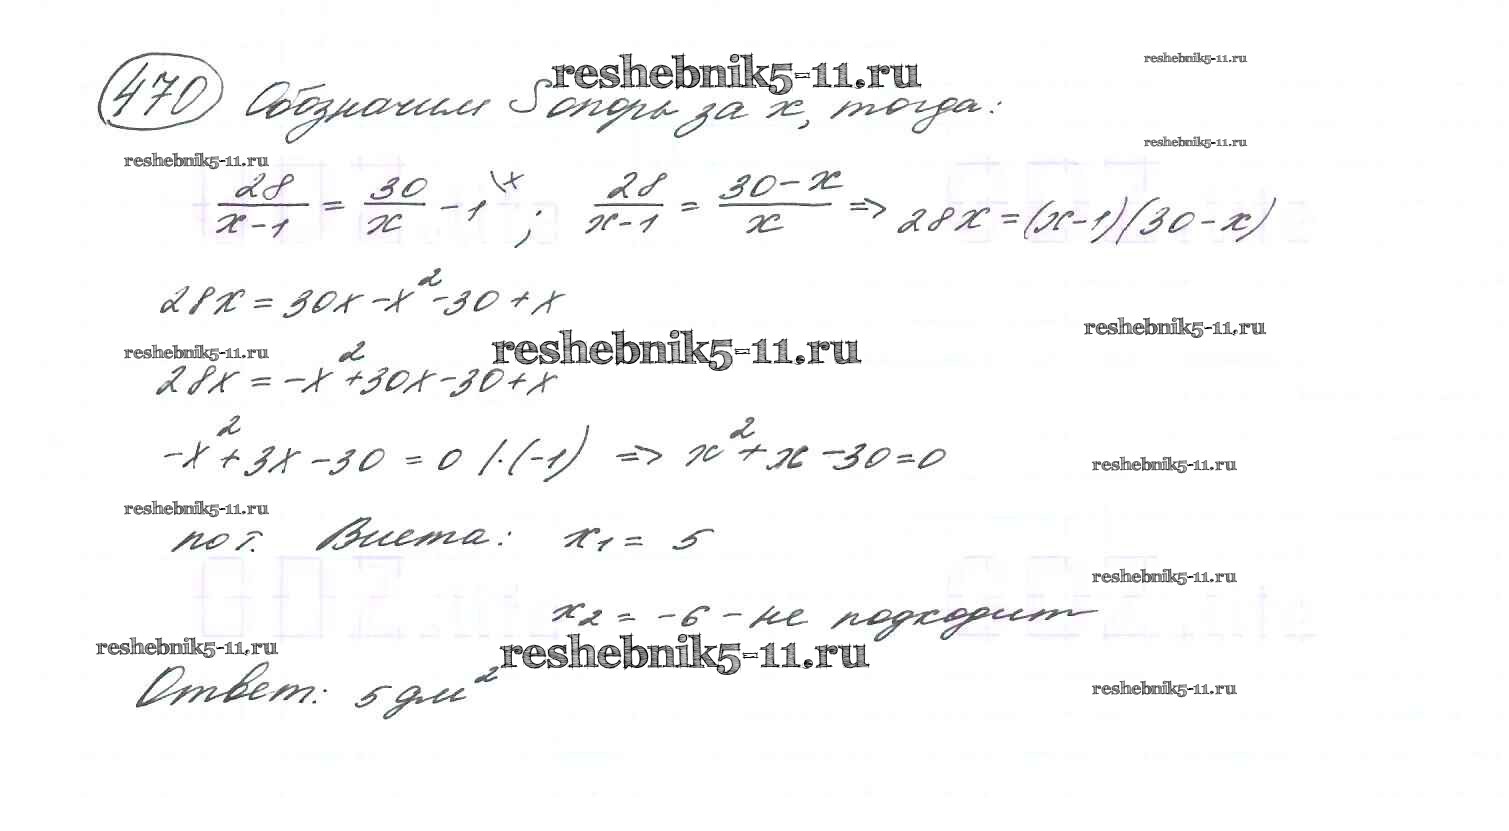 reshebnik5-11.ru
reshebnik5-11.ru
470 Обозначим S опоры за x, тогда:
reshebnik5-11.ru
reshebnik5-11.ru
28/(x-1) = 30/x - 1 \x ; 28/(x-1) = (30-x)/x => 28x = (x-1)(30-x)
28x = 30x - x² - 30 + x
reshebnik5-11.ru
reshebnik5-11.ru
reshebnik5-11.ru
28x = -x² + 30x - 30 + x
-x² + 3x - 30 = 0 |·(-1) => x² + x - 30 = 0
reshebnik5-11.ru
reshebnik5-11.ru
по т. Виета: x₁ = 5
reshebnik5-11.ru
x₂ = -6 - не подходит
reshebnik5-11.ru
reshebnik5-11.ru
Ответ: 5 дм²
reshebnik5-11.ru